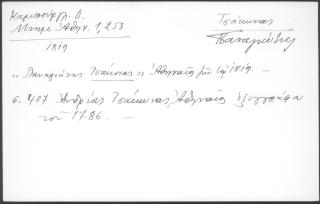 Καμπούρογλ. Δ.
Μνημ. Ἀθην. 1, 253
1819
Τσάκωνας
Παναγιώτης
" Παναγιώτης Τσάκονας " Ἀθηναῖος 1819. —
σ. 407 Ἀνδρέας Τσάκωνας, Ἀθηναῖος ἔγγραφα
τοῦ 1786. —